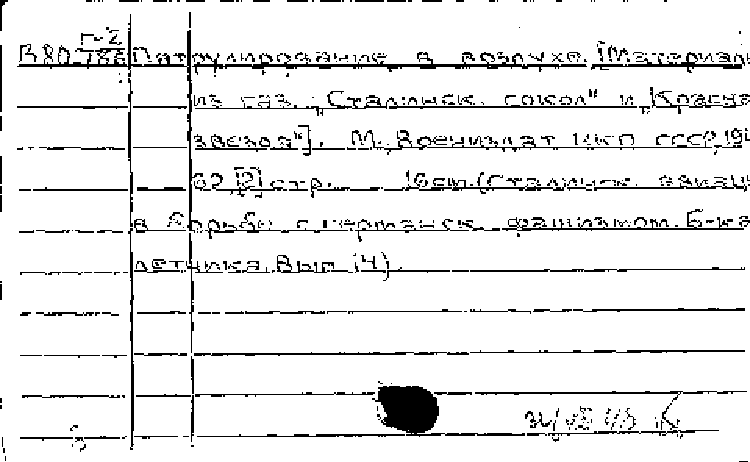 Г-2
В80 786 Патрулирование в воздухе. [Материал
из газ. „Сталинск. сокол" и „Красная
звезда"]. М. Воениздат НКО СССР, 19
62, [2] стр. 16 см. (Сталинск. авиац
в борьбе с германск. фашизмом. Б-ка
летчика. Вып. 14)